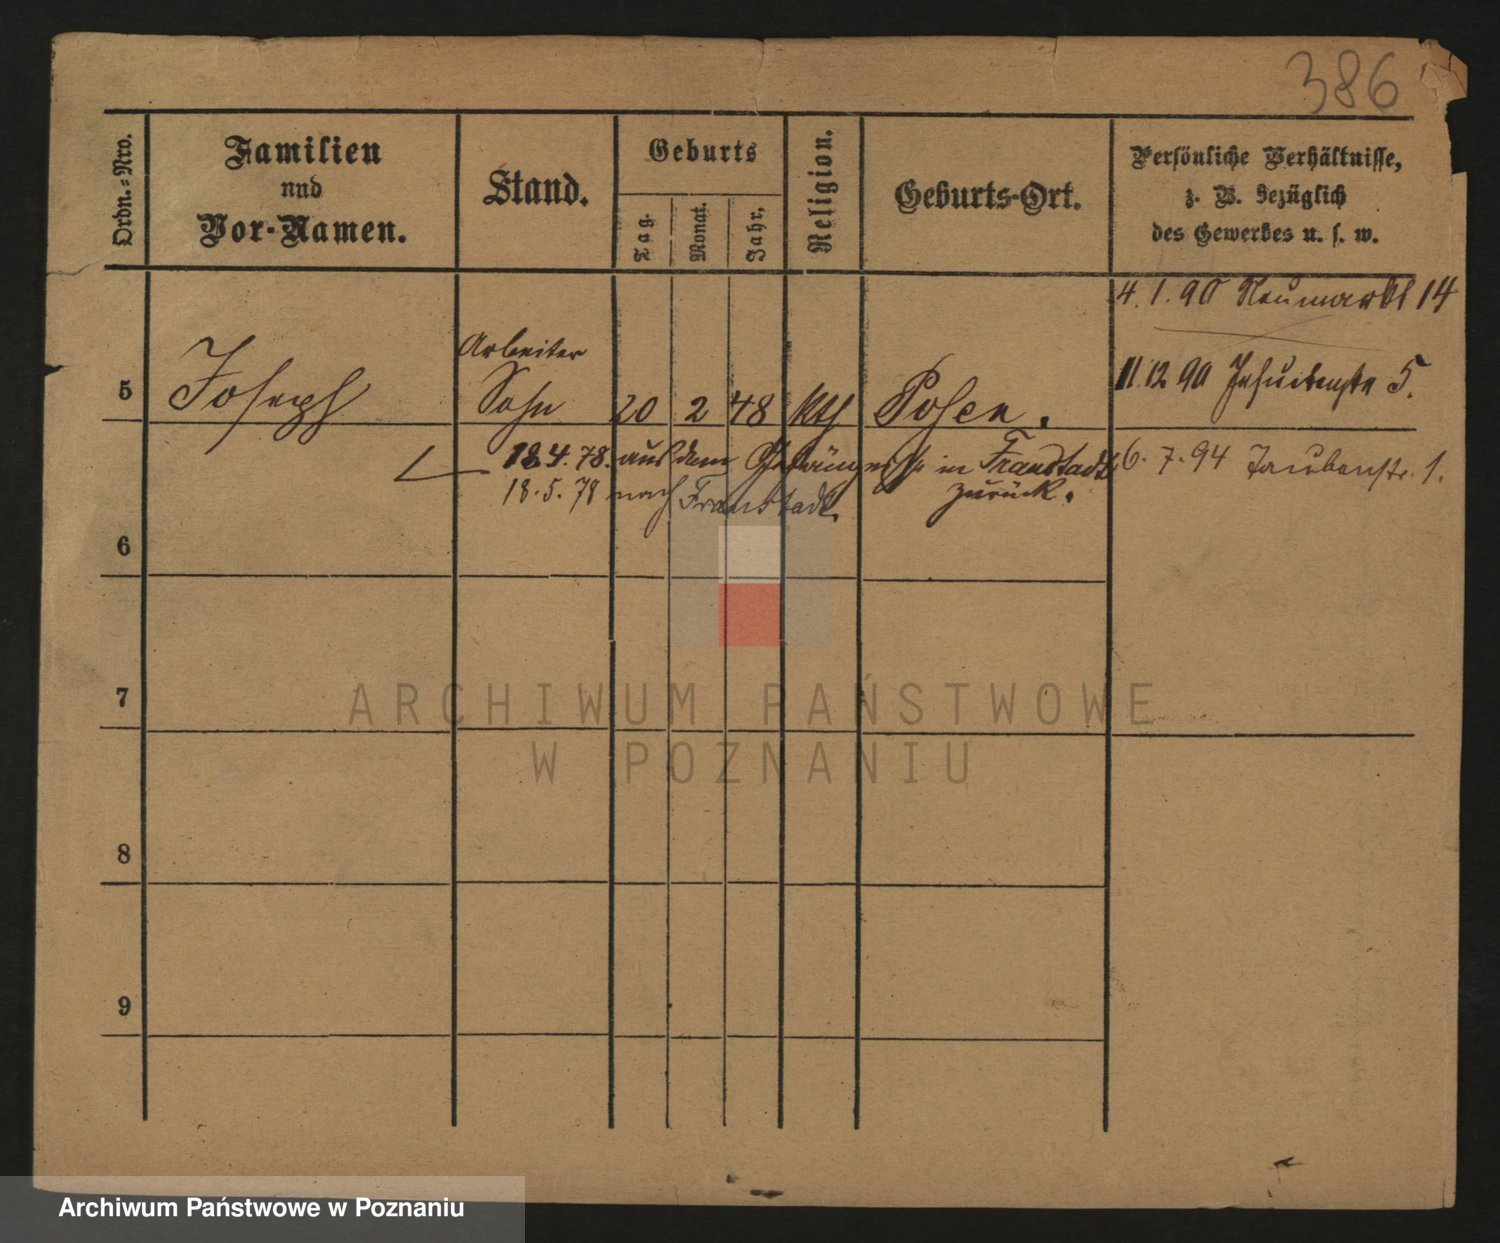 386
Ordn.=Nro.
Familien
und
Vor-Namen.
Stand.
Geburts
Tag.
Monat.
Jahr.
Religion.
Geburts-Ort.
Persönliche Verhältnisse,
z. B. bezüglich
des Gewerbes u. s. w.
4. 1. 90 Neumarkt 14
Arbeiter
11.12 90 Jesuitenstr 5.
5 Joseph Sohn 20 2 48 kth Posen.
18.4.78. aus dem Gefängnisse in Fraustadt
zurück.
6. 7. 94 Taubenstr. 1.
18.5.78 nach Fraustadt.
6
7
8
9
ARCHIWUM PAŃSTWOWE
W POZNANIU
Archiwum Państwowe w Poznaniu